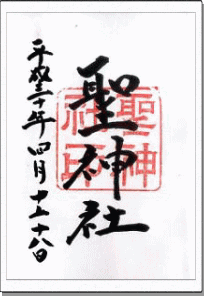 聖神社
聖神
社印
平成 十年四月 十八日